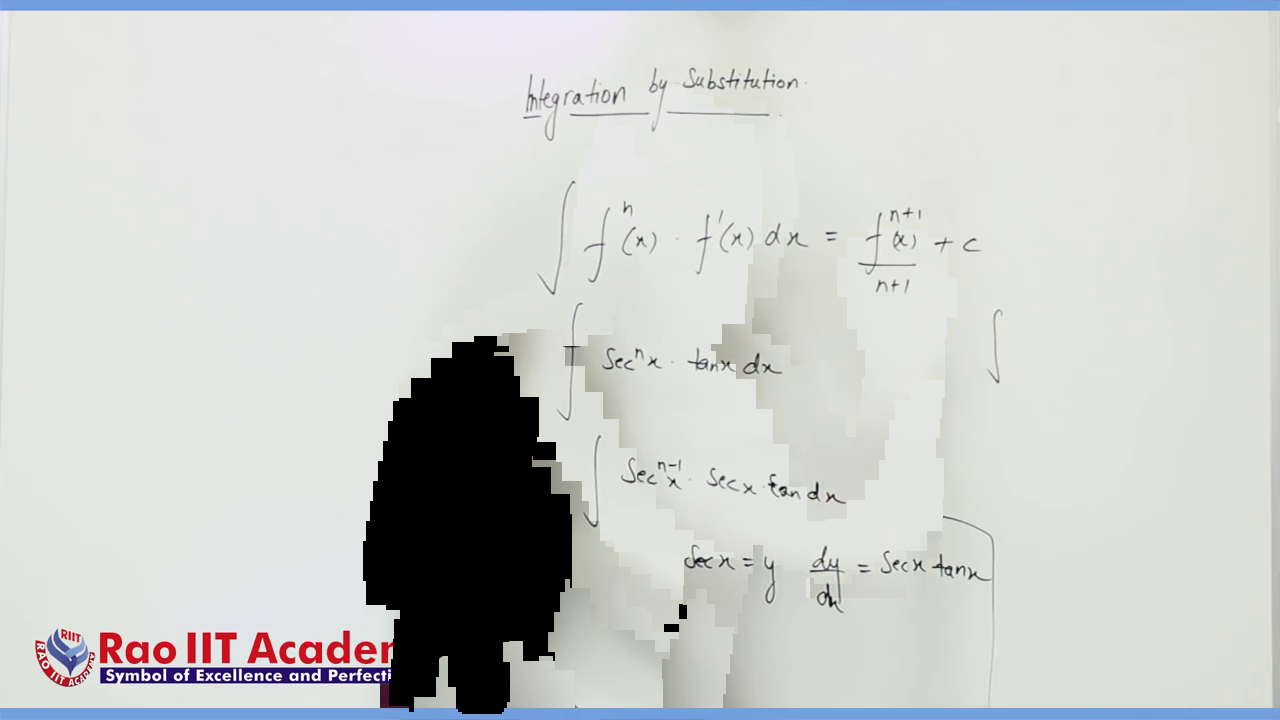 Integration by Substitution.
∫ fⁿ(x) · f'(x) dx = fⁿ⁺¹(x) / n+1 + c
∫ Secⁿx · tanx dx
∫
∫ Secⁿ⁻¹x · Secx · tan dx
Secx = y dy/dx = Secx tanx
RIIT
RAO IIT ACADEMY
Rao IIT Academ
Symbol of Excellence and Perfecti